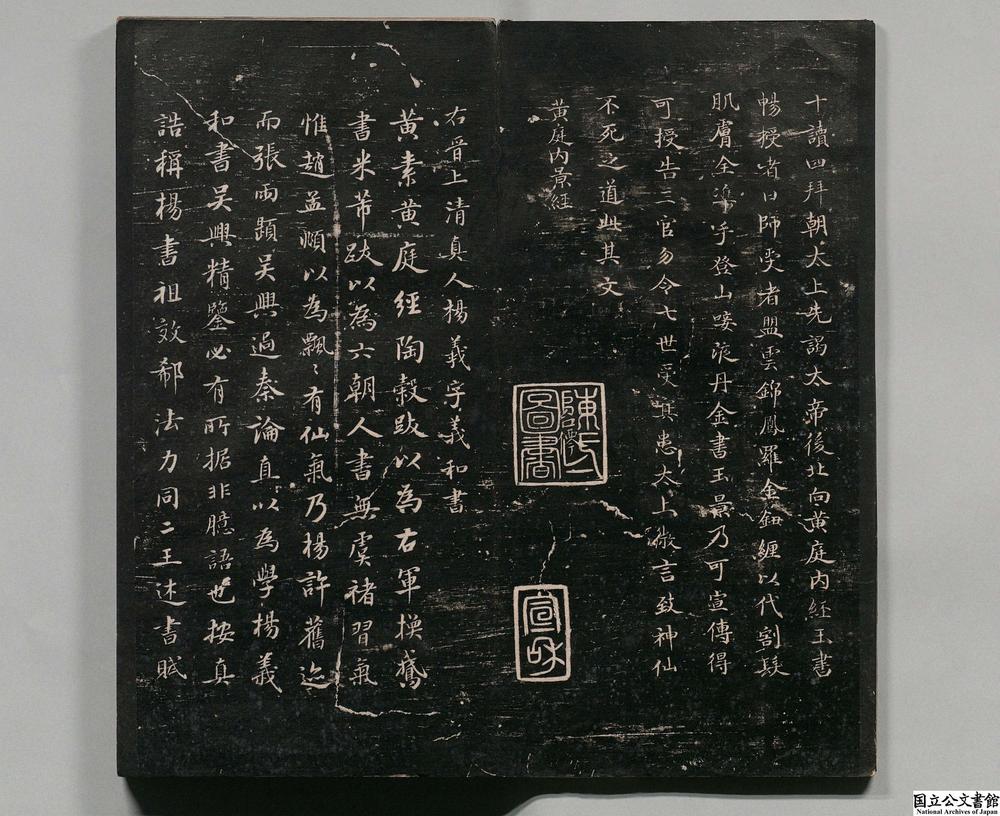 十讀四拜朝太上先謁太帝後北向黄庭内經玉書
暢授者曰師受者盟雲錦鳳羅金鈕纏以代割髮
肌膚全 乎登山喽液丹金書玉景乃可宣傳得
可授告三官勿令七世受冥患太上微言致神仙
不死之道此其文
黄庭内景經
陳氏圖書
宣和
右晉上清真人楊羲字羲和書
黄素黄庭經陶穀跋以為右軍換鵞
書米芾跋以為六朝人書無虞褚習氣
惟趙孟頫以為飄〻有仙氣乃楊許舊迹
而張雨題吴興過秦論直以為學楊羲
和書吴興精鑒必有所据非臆語也按真
誥稱楊書祖效郗法力同二王述書賦
国立公文書館
National Archives of Japan